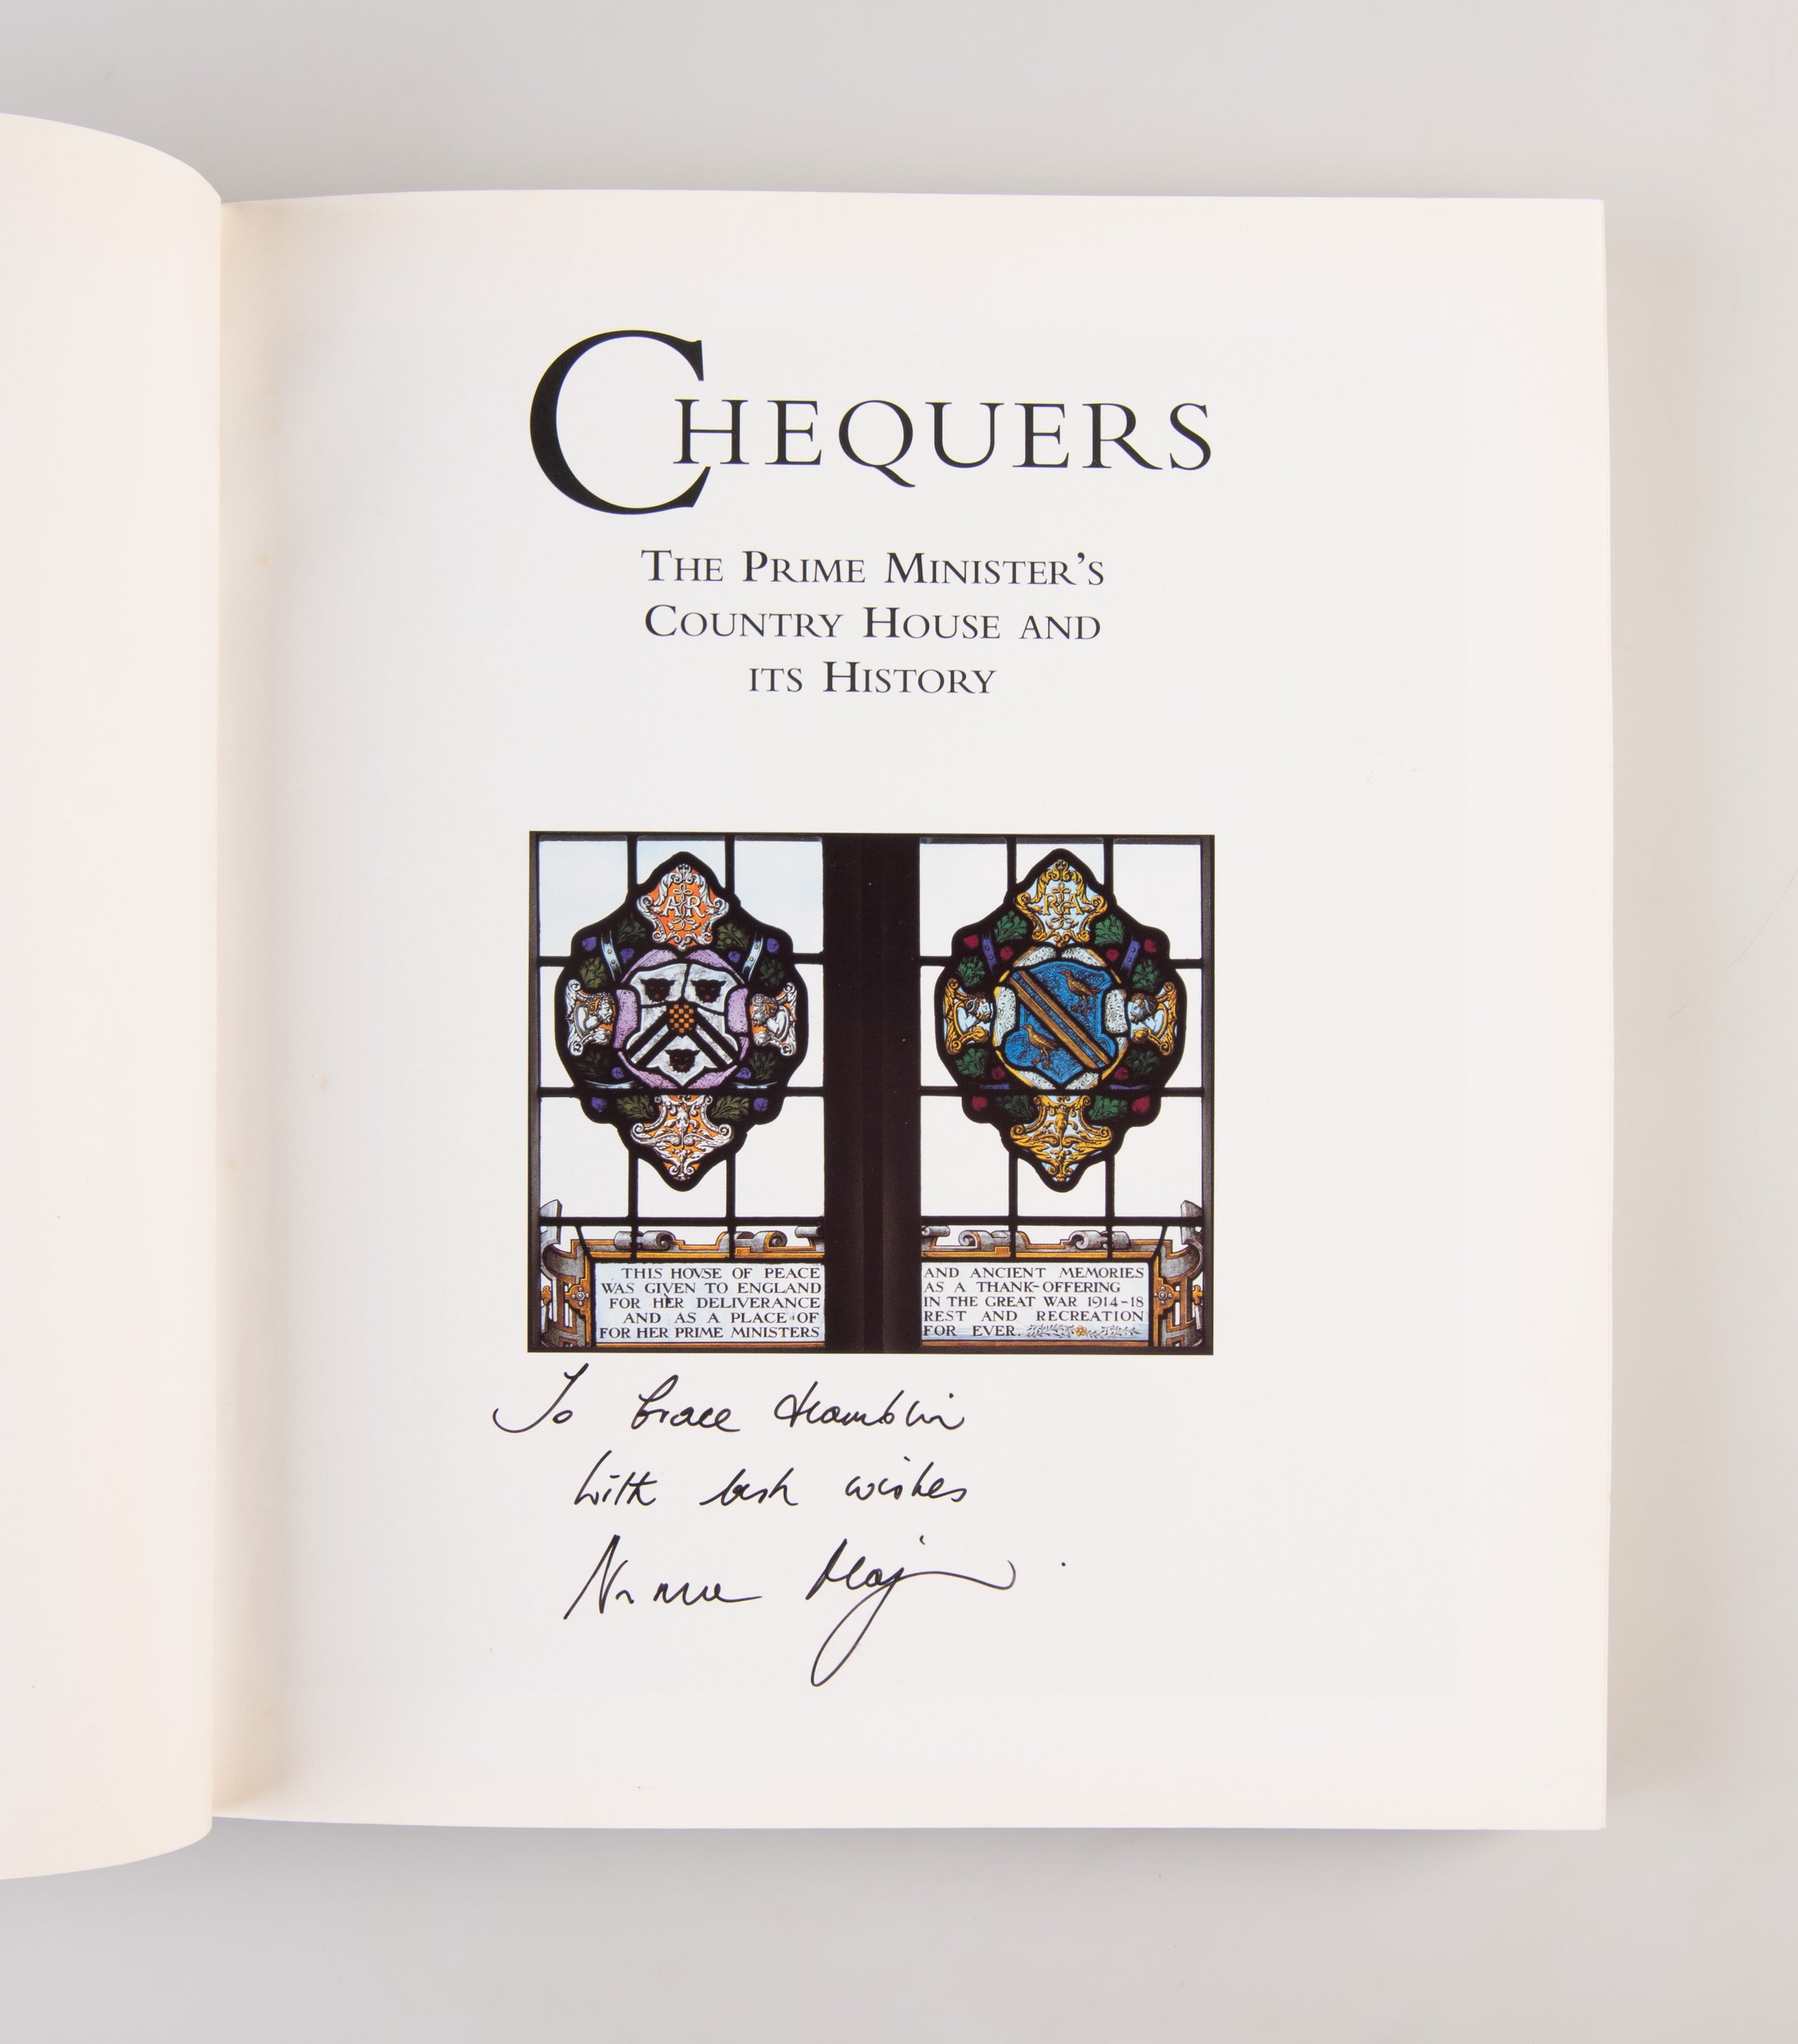 CHEQUERS
THE PRIME MINISTER'S
COUNTRY HOUSE AND
ITS HISTORY
AR
RA
THIS HOVSE OF PEACE
WAS GIVEN TO ENGLAND
FOR HER DELIVERANCE
AND AS A PLACE OF
FOR HER PRIME MINISTERS
AND ANCIENT MEMORIES
AS A THANK-OFFERING
IN THE GREAT WAR 1914-18
REST AND RECREATION
FOR EVER.
To Grace Hamblin
With best wishes
Norma Major